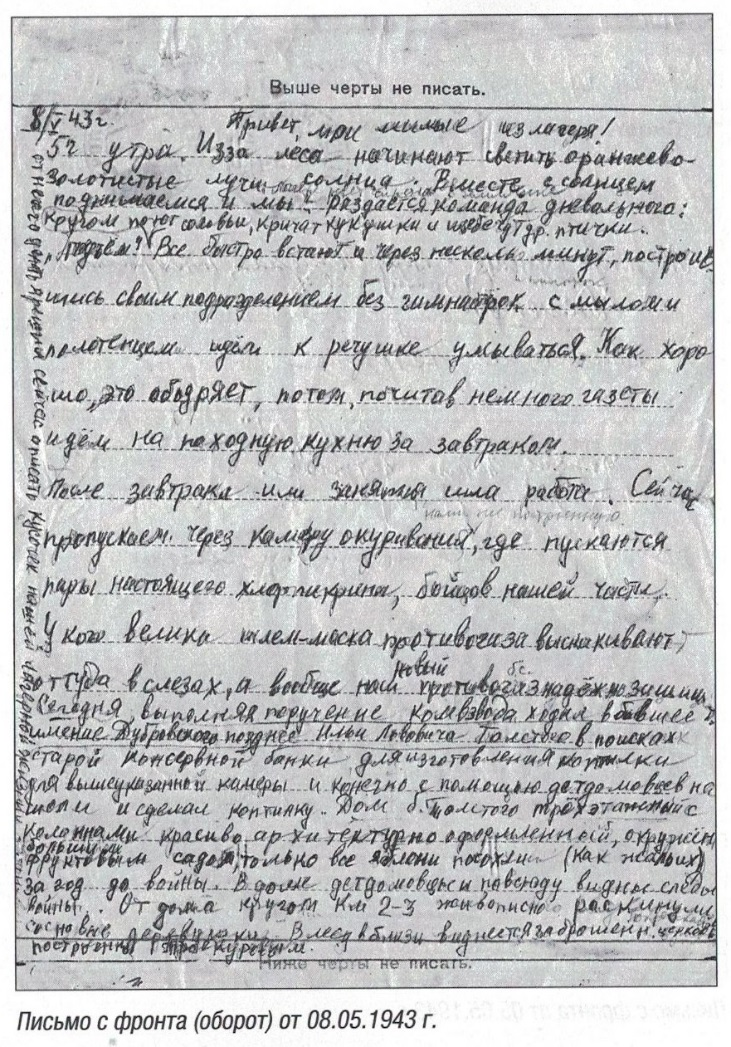 Выше черты не писать.
8/V 43 г. Привет, мои милые из лагеря!
5ч утра. Изза леса начинают светить оранжево-
золотистые лучи солнца. Вместе с солнцем
поднимаемся и мы. раздаётся команда дневального:
Кругом поют соловьи, кричат кукушки и щебечут др. птички.
"Подъём!" Все быстро встают и через несколько минут, построив
шись своим подразделением без гимнастёрок с мылом и
полотенцем идём к речушке умываться. Как хоро
шо, это ободряет, потом, почитав немного газеты
идём на походную кухню за завтраком.
После завтрака или занятия или работа. Сейчас
пропускаем через камеру окуривания, где пускаются
пары настоящего хлорпикрина, бойцов нашей части.
У кого велика шлем-маска противогаза выскакивают
оттуда в слезах, а вообще наш новый противогаз надёжно защищ.
Сегодня, выполняя поручение комвзвода ходил в бывшее
имение Дубровского позднее Ильи Львовича Толстого в поисках
старой консервной банки для изготовления коптилки
для вышеуказанной камеры и конечно с помощью детдомовцев на
шли и сделал коптилку. Дом б. Толстого трёхэтажный с
колоннами красиво архитектурно оформленный, окружён
большим
фруктовым садом, только все яблони посохли (как жалко их)
за год до войны. В доме детдомовцы и повсюду видны следы
войны. От дома кругом км 2-3 живописно раскинулись
деревушки. В лесу вблизи виднеется заброшенн. церковь
построенная
Ниже черты не писать.
от нечего делать я решил сейчас описать кусочек нашей лагерной жизни
Письмо с фронта (оборот) от 08.05.1943 г.